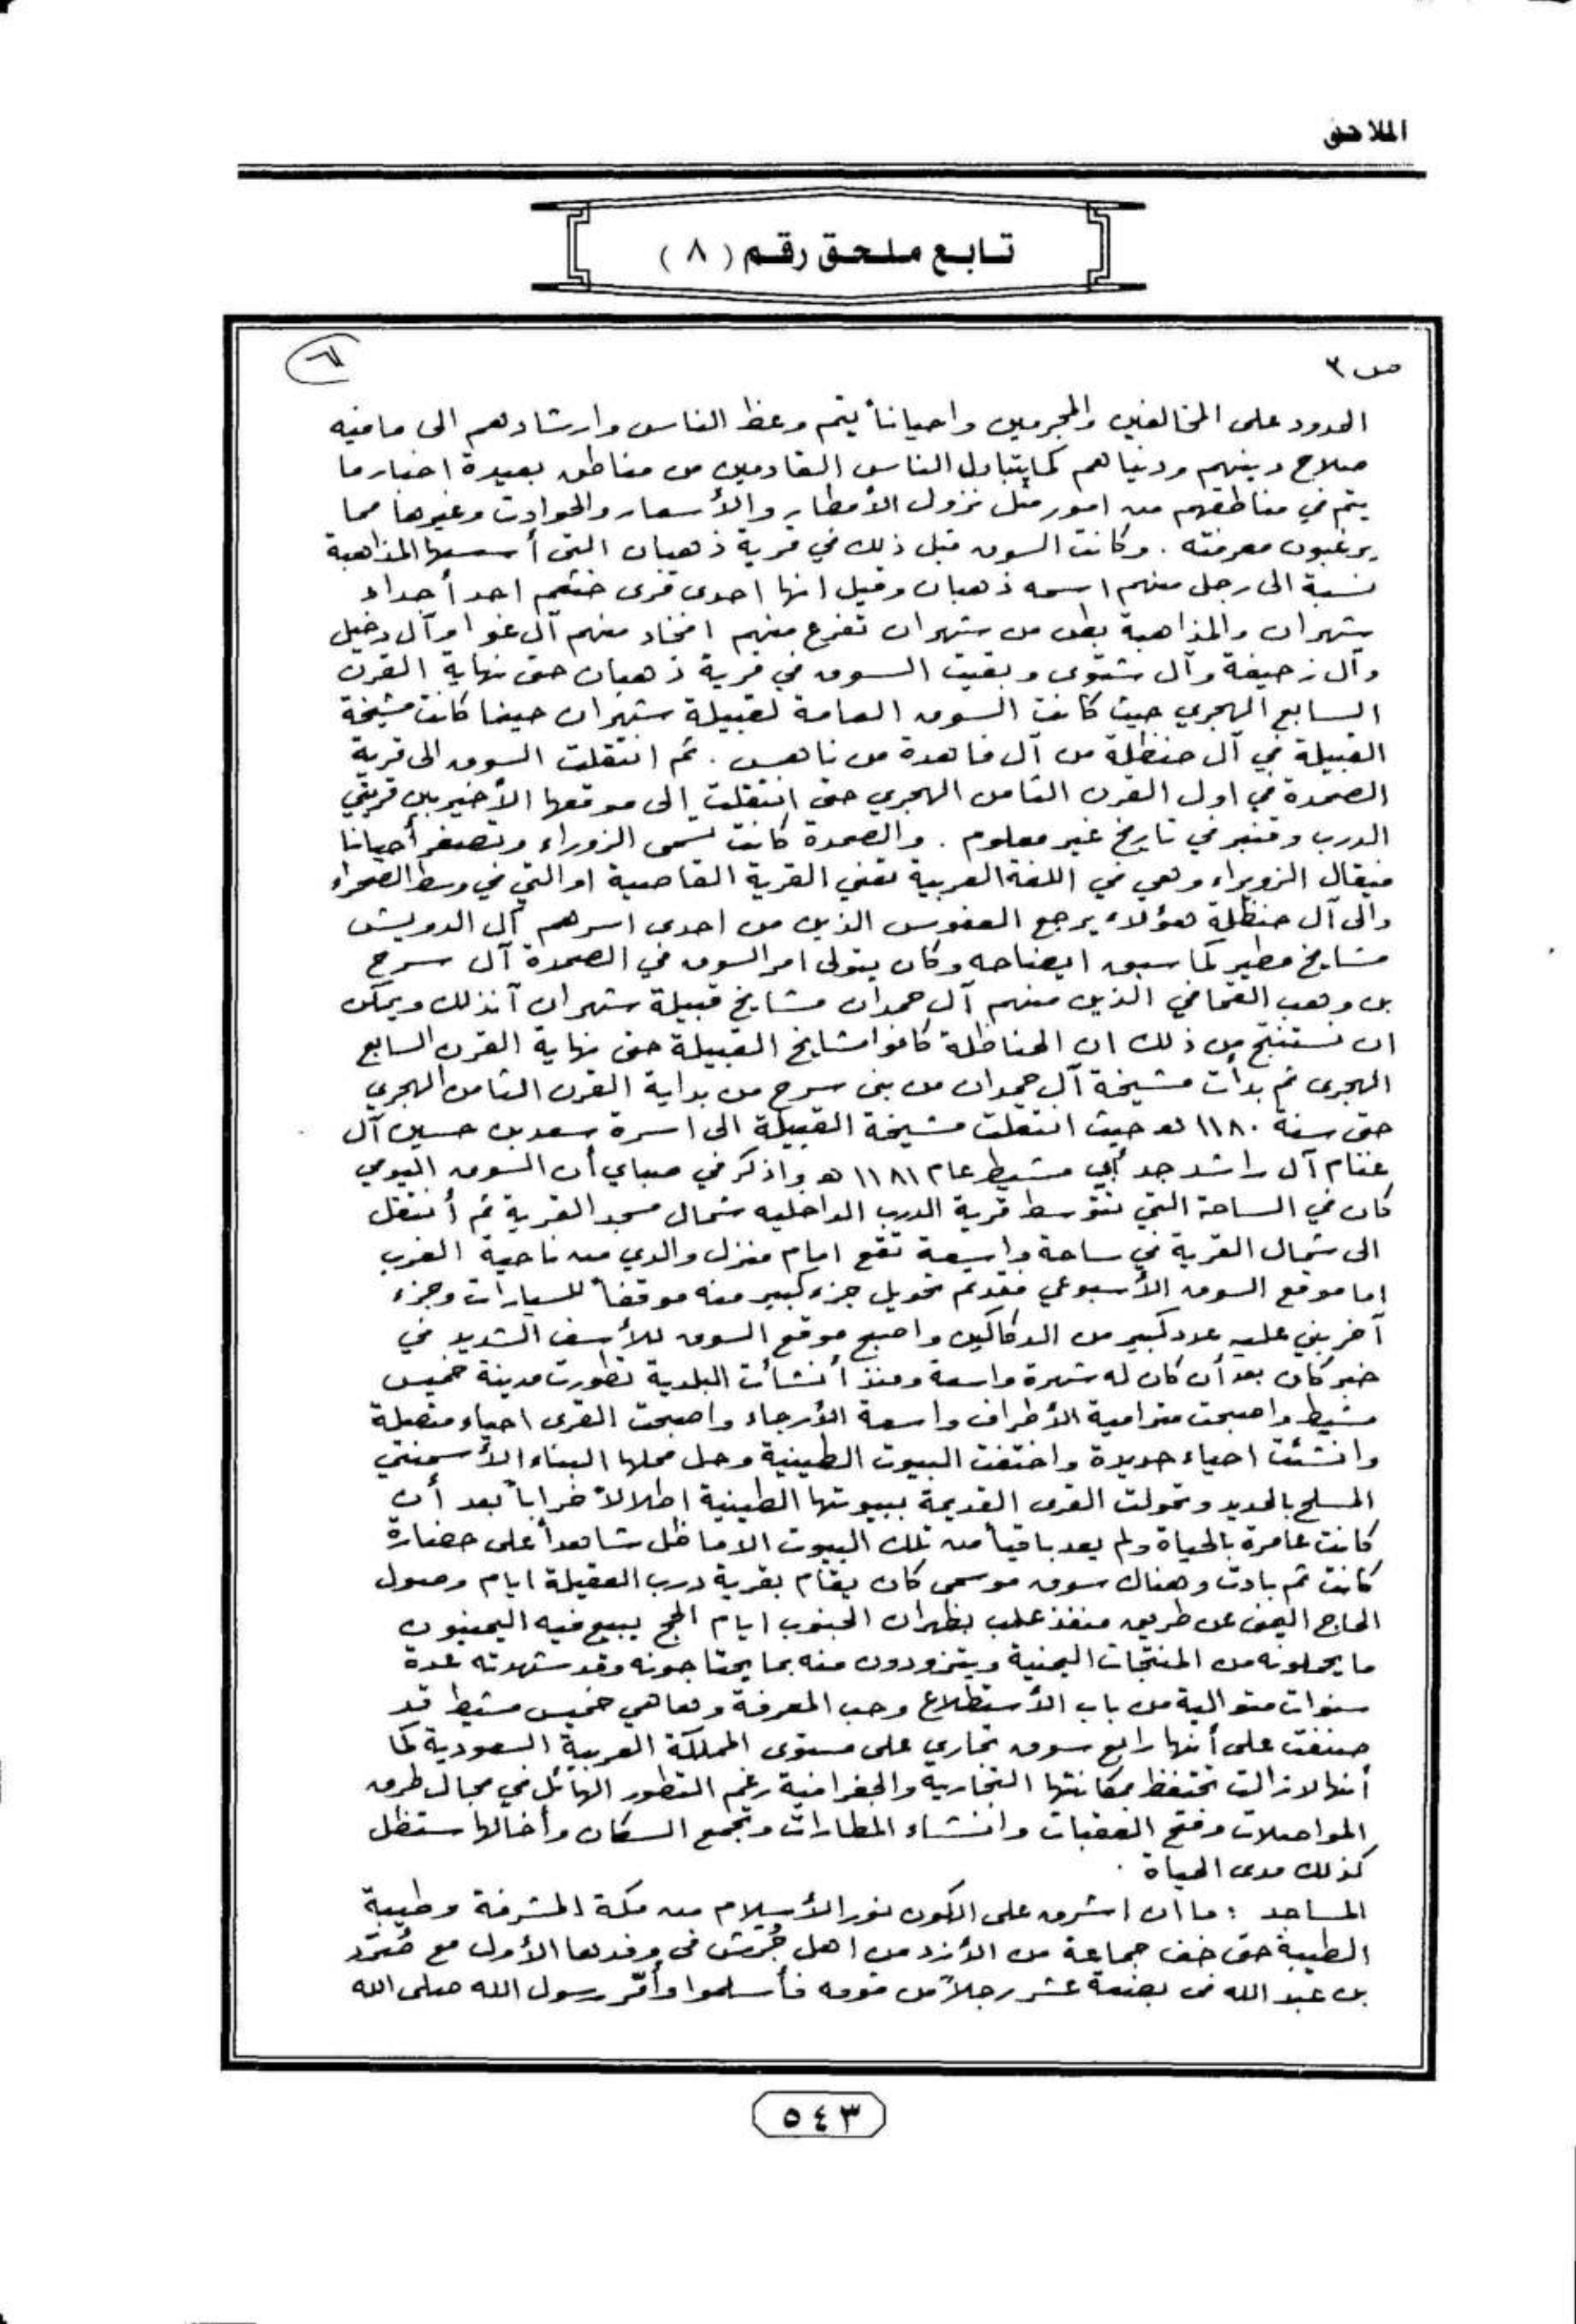 الملاحق
تابع ملحق رقم ( ٨ )
ص ٣
الحدود على المخالفين والمجرمين واحياناً يتم وعظ الناس وارشادهم الى مافيه
صلاح دينهم ودنياهم كما يتبادل الناس القادمين من مناطق بعيدة اخبار ما
يتم في مناطقهم من امور مثل نزول الأمطار والأسعار والحوادث وغيرها مما
يرغبون معرفته . وكانت السوق قبل ذلك في قرية ذهبان التى أسسها المذاهبة
نسبة الى رجل منهم اسمه ذهبان وقيل انها احدى قرى خثعم احد أجداد
شهران والمذاهبة بطن من شهران تفرع منهم افخاد منهم آل غوا وآل دخيل
وآل زحيفة وآل شتوى وبقيت السوق في قرية ذهبان حتى نهاية القرن
السابع الهجري حيث كانت السوق العامة لقبيلة شهران حينما كانت مشيخة
القبيلة في آل حنظلة من آل فاهدة من ناهس . ثم انتقلت السوق الى قرية
الصمدة في اول القرن الثامن الهجري حتى انتقلت إلى موقعها الأخير بين قريتي
الدرب وقنبر في تاريخ غير معلوم . والصمدة كانت تسمى الزوراء وتصغر أحيانا
فيقال الزويراء وهي في اللغة العربية تعني القرية القاصية او التي في وسط الصحراء
والى آل حنظلة هؤلاء يرجع العفوس الذين من احدى اسرهم آل الدويش
مشايخ مطير كما سبق ايضاحه وكان يتولى امر السوق في الصمدة آل سرح
بن وهب القحافي الذين منهم آل حمدان مشايخ قبيلة شهران آنذلك ويمكن
ان نستنتج من ذلك ان الحناظلة كانوا مشايخ القبيلة حتى نهاية القرن السابع
الهجرى ثم بدأت مشيخة آل حمدان من بنى سرح من بداية القرن الثامن الهجري
حتى سنة ١١٨٠ هـ حيث انتقلت مشيخة القبيلة الى اسرة سعد بن حسين آل
غنام آل راشد جد أبي مشيط عام ١١٨١ هـ واذكر في صباي أن السوق اليومي
كان في الساحة التي تتوسط قرية الدرب الداخليه شمال مسجد القرية ثم أنتقل
الى شمال القرية في ساحة واسعة تقع امام منزل والدي من ناحية الغرب
اما موقع السوق الأسبوعي فقد تم تحويل جزء كبير منه موقفاً للسيارات وجزء
آخر بني عليه عدد كبير من الدكاكين واصبح موقع السوق للأسف الشديد في
خبر كان بعد أن كان له شهرة واسعة ومنذ أنشأت البلدية تطورت مدينة خميس
مشيط واصبحت مترامية الأطراف واسعة الأرجاء واصبحت القرى احياء متصلة
وانشئت احياء جديدة واختفت البيوت الطينية وحل محلها البناء الأسمنتي
المسلح بالحديد وتحولت القرى القديمة ببيوتها الطينية اطلالاً خراباً بعد أن
كانت عامرة بالحياة ولم يعد باقياً من تلك البيوت الا ما ظل شاهداً على حضارة
كانت ثم بادت وهناك سوق موسمى كان يقام بقرية درب العقيلة ايام وصول
الحاج اليمنى عن طريق منفذ علب بظهران الجنوب ايام الحج يبيع فيه اليمنيون
ما يحملونه من المنتجات اليمنية ويتزودون منه بما يحتاجونه وقد شهدته عدة
سنوات متوالية من باب الأستطلاع وحب المعرفة وهاهي خميس مشيط قد
صنفت على أنها رابع سوق تجاري على مستوى المملكة العربية السعودية كما
أنها لازالت تحتفظ بمكانتها التجارية والجغرافية رغم التطور الهائل في مجال طرق
المواصلات وفتح العقبات وانشاء المطارات وتجمع السكان وأخالها ستظل
كذلك مدى الحياة .
المساجد : ما ان اشرق على الكون نور الأسلام من مكة المشرفة وطيبة
الطيبة حتى خف جماعة من الأزد من اهل جُرَش فى وفدها الأول مع صُرَد
بن عبد الله فى بضعة عشر رجلاً من قومه فأسلموا وأمّر رسول الله صلى الله
٥٤٣